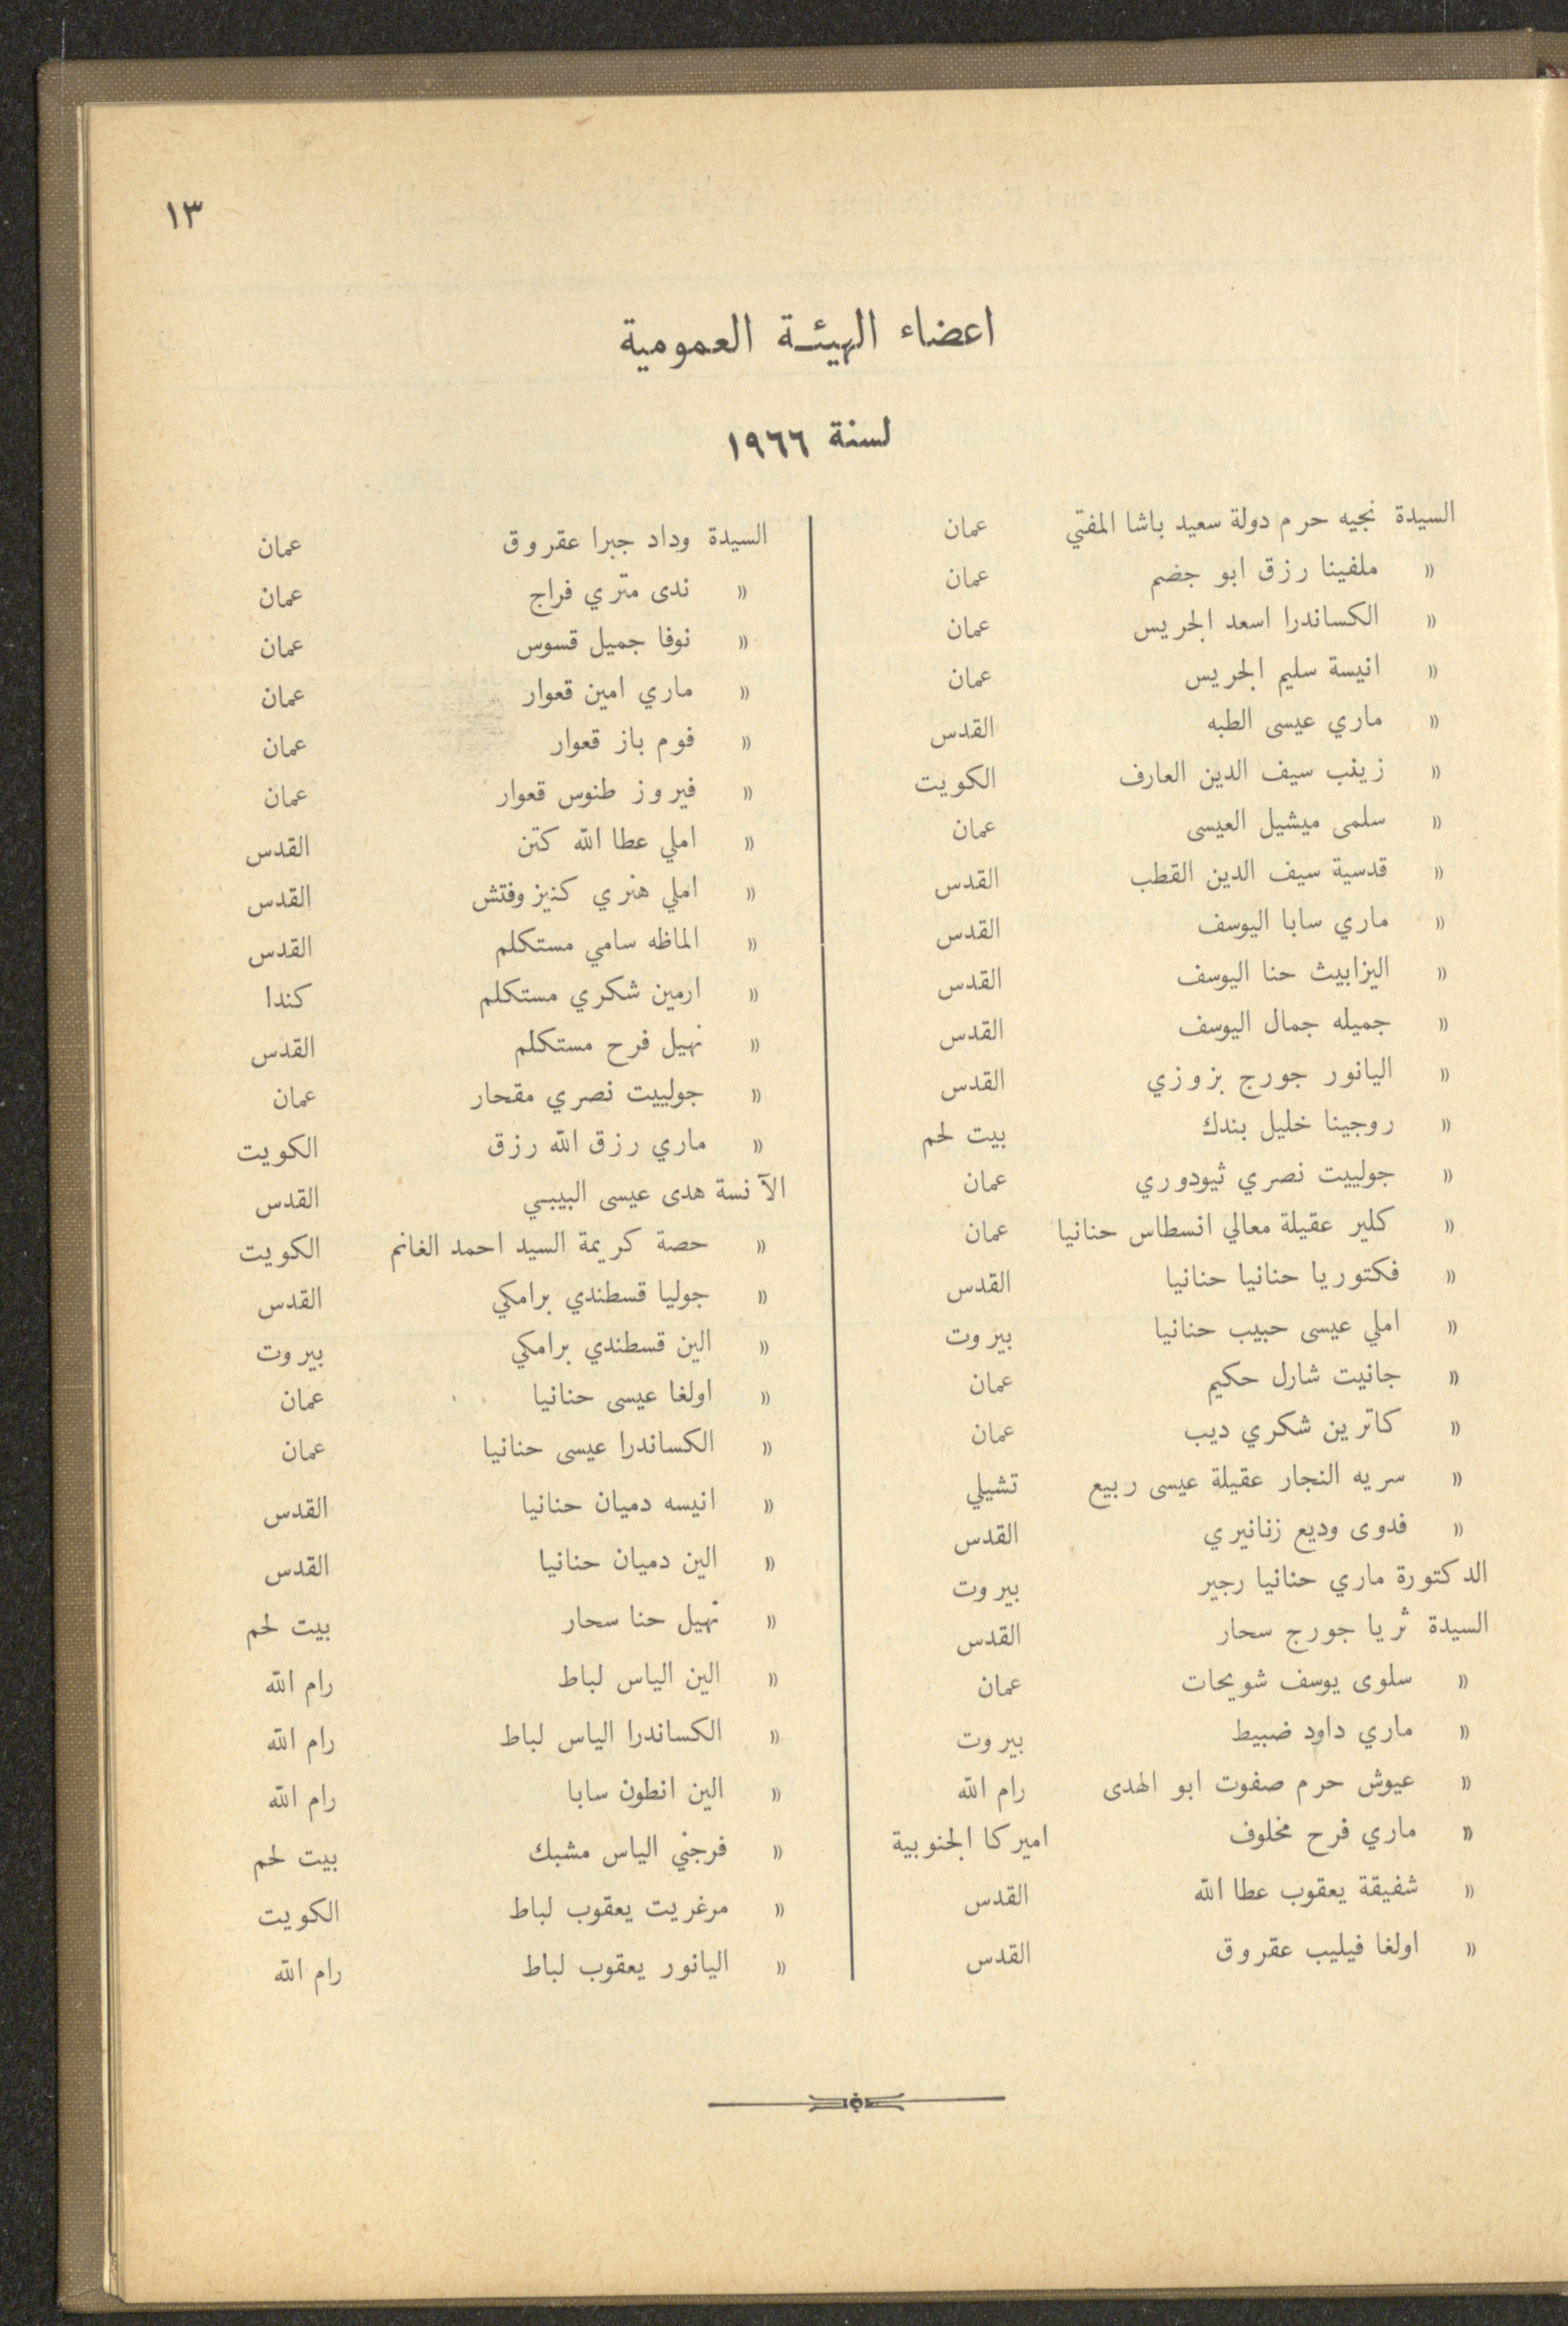 ١٣
اعضاء الهيئة العمومية
لسنة ١٩٦٦
السيدة نجيه حرم دولة سعيد باشا المفتي عمان
» ملفينا رزق ابو جضم عمان
» الكساندرا اسعد الجريس عمان
» انيسة سليم الجريس عمان
» ماري عيسى الطبه القدس
» زينب سيف الدين العارف الكويت
» سلمى ميشيل العيسى عمان
» قدسية سيف الدين القطب القدس
» ماري سابا اليوسف القدس
» اليزابيث حنا اليوسف القدس
» جميله جمال اليوسف القدس
» اليانور جورج بزوزي القدس
» روجينا خليل بندك بيت لحم
» جولييت نصري ثيودوري عمان
» كلير عقيلة معالي انسطاس حنانيا عمان
» فكتوريا حنانيا حنانيا القدس
» املي عيسى حبيب حنانيا بيروت
» جانيت شارل حكيم عمان
» كاترين شكري ديب عمان
» سريه النجار عقيلة عيسى ربيع تشيلي
» فدوى وديع زنانيري القدس
الدكتورة ماري حنانيا رجير بيروت
السيدة ثريا جورج سحار القدس
» سلوى يوسف شويحات عمان
» ماري داود ضبيط بيروت
» عيوش حرم صفوت ابو الهدى رام الله
» ماري فرح مخلوف اميركا الجنوبية
» شفيقة يعقوب عطا الله القدس
» اولغا فيليب عقروق القدس
السيدة وداد جبرا عقروق عمان
» ندى متري فراج عمان
» نوفا جميل قسوس عمان
» ماري امين قعوار عمان
» فوم باز قعوار عمان
» فيروز طنوس قعوار عمان
» املي عطا الله كتن القدس
» املي هنري كنيزوفتش القدس
» الماظه سامي مستكلم القدس
» ارمين شكري مستكلم كندا
» نهيل فرح مستكلم القدس
» جولييت نصري مقحار عمان
» ماري رزق الله رزق الكويت
الآنسة هدى عيسى البيبي القدس
» حصة كريمة السيد احمد الغانم الكويت
» جوليا قسطندي برامكي القدس
» الين قسطندي برامكي بيروت
» اولغا عيسى حنانيا عمان
» الكساندرا عيسى حنانيا عمان
» انيسه دميان حنانيا القدس
» الين دميان حنانيا القدس
» نهيل حنا سحار بيت لحم
» الين الياس لباط رام الله
» الكساندرا الياس لباط رام الله
» الين انطون سابا رام الله
» فرجني الياس مشبك بيت لحم
» مرغريت يعقوب لباط الكويت
» اليانور يعقوب لباط رام الله